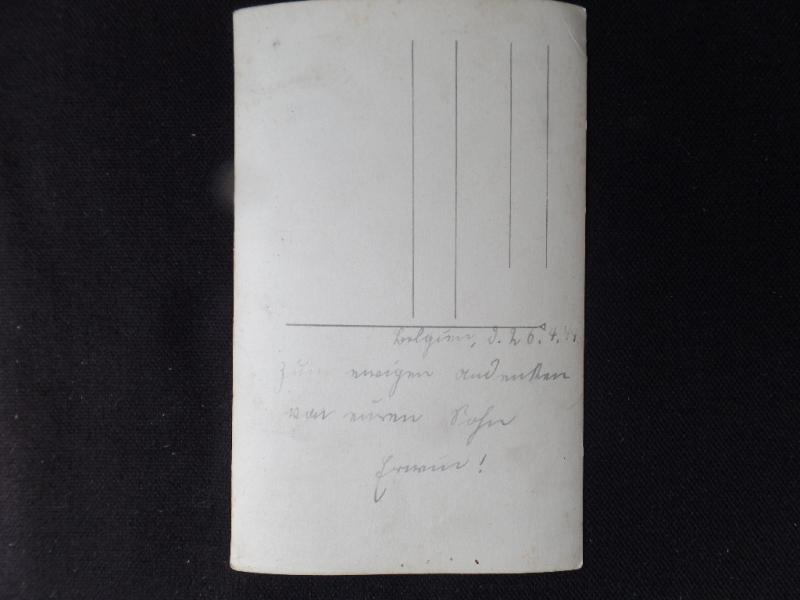 Belgien, d. 26.4.41
Zum ewigen andenken
von euren Sohn
Erwin!